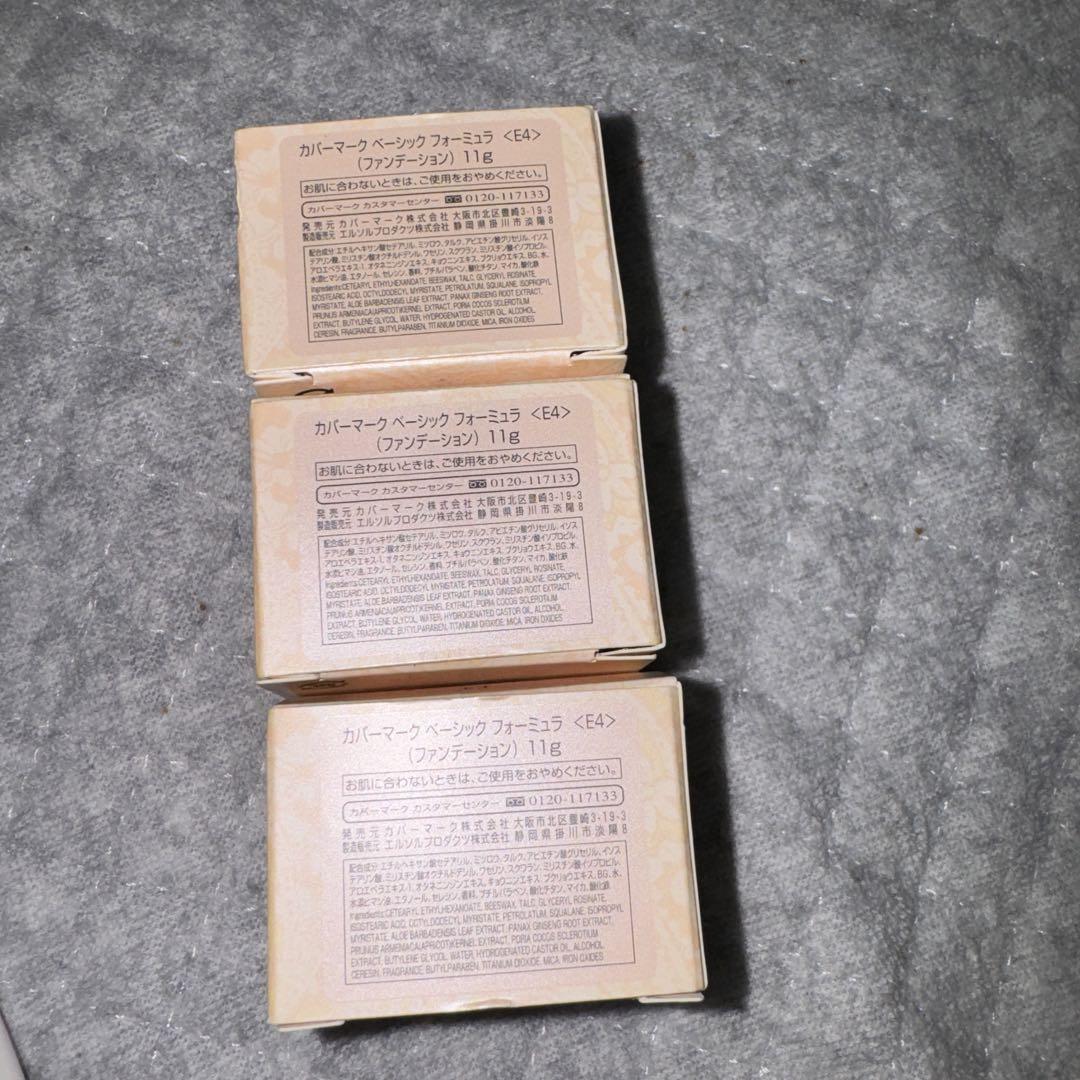 カバーマーク ベーシック フォーミュラ 〈E4〉
（ファンデーション）11g
お肌に合わないときは、ご使用をおやめください。
カバーマーク カスタマーセンター 0120-117133
発売元 カバーマーク株式会社 大阪市北区豊崎3-19-3
製造販売元 エルソルプロダクツ株式会社 静岡県掛川市淡陽8
配合成分:エチルヘキサン酸セテアリル、ミツロウ、タルク、アビエチン酸グリセリル、イソス
テアリン酸、ミリスチン酸オクチルドデシル、ワセリン、スクワラン、ミリスチン酸イソプロピル、
アロエベラエキス-1、オタネニンジンエキス、キョウニンエキス、ブクリョウエキス、BG、水、
水添ヒマシ油、エタノール、セレシン、香料、ブチルパラベン、酸化チタン、マイカ、酸化鉄
Ingredients:CETEARYL ETHYLHEXANOATE, BEESWAX, TALC, GLYCERYL ROSINATE,
ISOSTEARIC ACID, OCTYLDODECYL MYRISTATE, PETROLATUM, SQUALANE, ISOPROPYL
MYRISTATE, ALOE BARBADENSIS LEAF EXTRACT, PANAX GINSENG ROOT EXTRACT,
PRUNUS ARMENIACA(APRICOT)KERNEL EXTRACT, PORIA COCOS SCLEROTIUM
EXTRACT, BUTYLENE GLYCOL, WATER, HYDROGENATED CASTOR OIL, ALCOHOL,
CERESIN, FRAGRANCE, BUTYLPARABEN, TITANIUM DIOXIDE, MICA, IRON OXIDES
カバーマーク ベーシック フォーミュラ 〈E4〉
（ファンデーション）11g
お肌に合わないときは、ご使用をおやめください。
カバーマーク カスタマーセンター 0120-117133
発売元 カバーマーク株式会社 大阪市北区豊崎3-19-3
製造販売元 エルソルプロダクツ株式会社 静岡県掛川市淡陽8
配合成分:エチルヘキサン酸セテアリル、ミツロウ、タルク、アビエチン酸グリセリル、イソス
テアリン酸、ミリスチン酸オクチルドデシル、ワセリン、スクワラン、ミリスチン酸イソプロピル、
アロエベラエキス-1、オタネニンジンエキス、キョウニンエキス、ブクリョウエキス、BG、水、
水添ヒマシ油、エタノール、セレシン、香料、ブチルパラベン、酸化チタン、マイカ、酸化鉄
Ingredients:CETEARYL ETHYLHEXANOATE, BEESWAX, TALC, GLYCERYL ROSINATE,
ISOSTEARIC ACID, OCTYLDODECYL MYRISTATE, PETROLATUM, SQUALANE, ISOPROPYL
MYRISTATE, ALOE BARBADENSIS LEAF EXTRACT, PANAX GINSENG ROOT EXTRACT,
PRUNUS ARMENIACA(APRICOT)KERNEL EXTRACT, PORIA COCOS SCLEROTIUM
EXTRACT, BUTYLENE GLYCOL, WATER, HYDROGENATED CASTOR OIL, ALCOHOL,
CERESIN, FRAGRANCE, BUTYLPARABEN, TITANIUM DIOXIDE, MICA, IRON OXIDES
カバーマーク ベーシック フォーミュラ 〈E4〉
（ファンデーション）11g
お肌に合わないときは、ご使用をおやめください。
カバーマーク カスタマーセンター 0120-117133
発売元 カバーマーク株式会社 大阪市北区豊崎3-19-3
製造販売元 エルソルプロダクツ株式会社 静岡県掛川市淡陽8
配合成分:エチルヘキサン酸セテアリル、ミツロウ、タルク、アビエチン酸グリセリル、イソス
テアリン酸、ミリスチン酸オクチルドデシル、ワセリン、スクワラン、ミリスチン酸イソプロピル、
アロエベラエキス-1、オタネニンジンエキス、キョウニンエキス、ブクリョウエキス、BG、水、
水添ヒマシ油、エタノール、セレシン、香料、ブチルパラベン、酸化チタン、マイカ、酸化鉄
Ingredients:CETEARYL ETHYLHEXANOATE, BEESWAX, TALC, GLYCERYL ROSINATE,
ISOSTEARIC ACID, OCTYLDODECYL MYRISTATE, PETROLATUM, SQUALANE, ISOPROPYL
MYRISTATE, ALOE BARBADENSIS LEAF EXTRACT, PANAX GINSENG ROOT EXTRACT,
PRUNUS ARMENIACA(APRICOT)KERNEL EXTRACT, PORIA COCOS SCLEROTIUM
EXTRACT, BUTYLENE GLYCOL, WATER, HYDROGENATED CASTOR OIL, ALCOHOL
CERESIN, FRAGRANCE, BUTYLPARABEN, TITANIUM DIOXIDE, MICA, IRON OXIDES